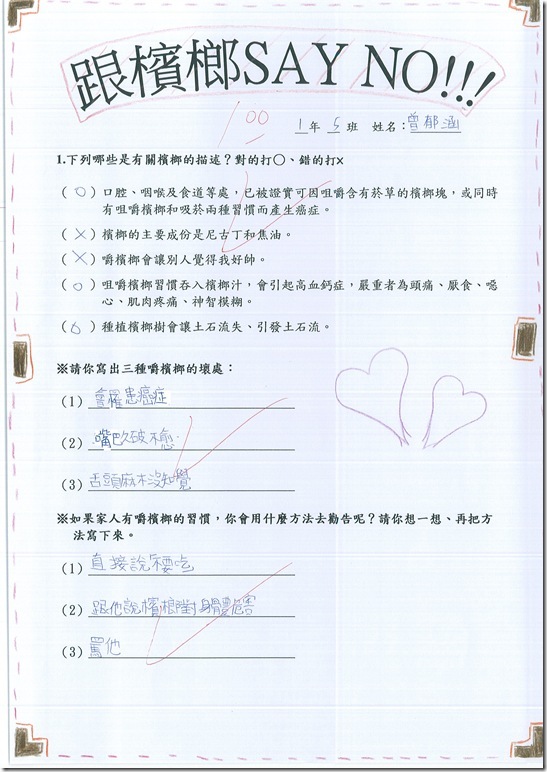 跟檳榔SAY NO!!!
100
1年5班 姓名：曾郁涵
1.下列哪些是有關檳榔的描述？對的打○、錯的打×
（○）口腔、咽喉及食道等處，已被證實可因咀嚼含有菸草的檳榔塊，或同時
有咀嚼檳榔和吸菸兩種習慣而產生癌症。
（×）檳榔的主要成份是尼古丁和焦油。
（×）嚼檳榔會讓別人覺得我好帥。
（○）咀嚼檳榔習慣吞入檳榔汁，會引起高血鈣症，嚴重者為頭痛、厭食、噁
心、肌肉疼痛、神智模糊。
（○）種植檳榔樹會讓土石流失、引發土石流。
※請你寫出三種嚼檳榔的壞處：
(1) 會罹患癌症
(2) 嘴巴久破不癒
(3) 舌頭麻木沒知覺
※如果家人有嚼檳榔的習慣，你會用什麼方法去勸告呢？請你想一想、再把方
法寫下來。
(1) 直接說不要吃
(2) 跟他說檳榔對身體危害
(3) 罵他